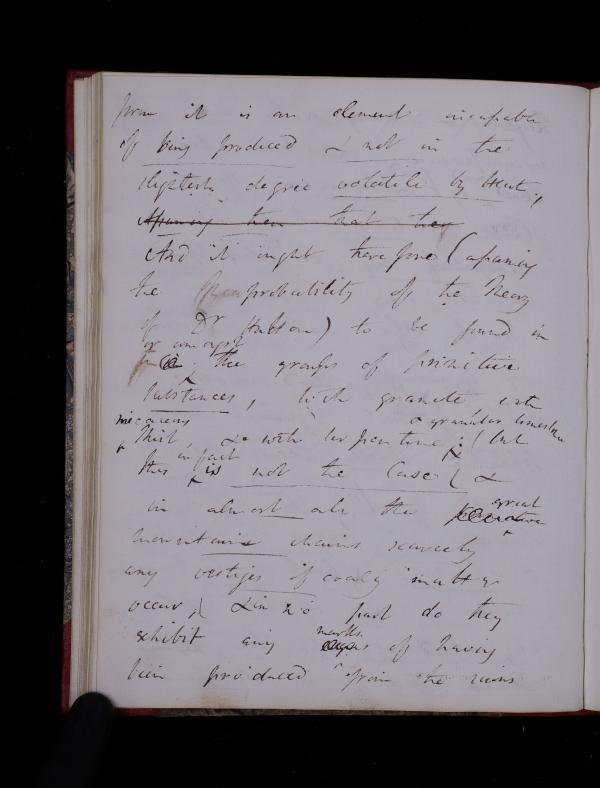 from it is an element incapable
of being produced & not in the
slightest degree volatile by heat,
Assuming then that they
And it ought therefore (assuming
the probability of the Theory
of Dr Hutton) to be found in
or amongst
in the groups of primitive
substances, with granite with
micaceous & granular limestone
shist, & with serpentine; (but
in fact
this is not the case) &
great
in almost all the primitive
mountain chains scarcely
any vestiges of coaly matter
occur, & in no part do they
marks
exhibit any signs of having
been produced from the ruins